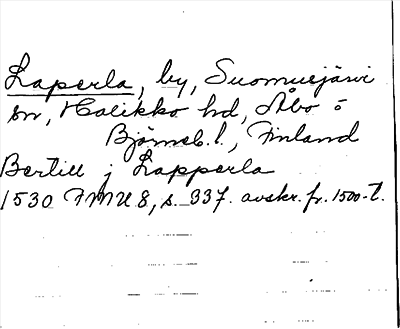 Laperla, by, Suomusjärvi
sn, Halikko hd, Åbo o
Björneb. l., Finland
Bertill j Lapperla
1530 FMU 8, s. 337. avskr. fr. 1500-t.